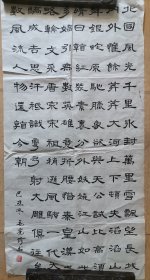 北國風光千里冰封萬里雪飄望長城內
外惟餘莽莽大河上下頓失滔滔山舞
銀蛇原馳蠟象欲與天公試比高須晴
日看紅裝素裹分外妖嬈江山如此多
嬌引無數英雄競折腰惜秦皇漢武略
輸文采唐宗宋祖稍遜風騷一代天
驕成吉思汗只識彎弓射大雕俱往矣
數風流人物還看今朝